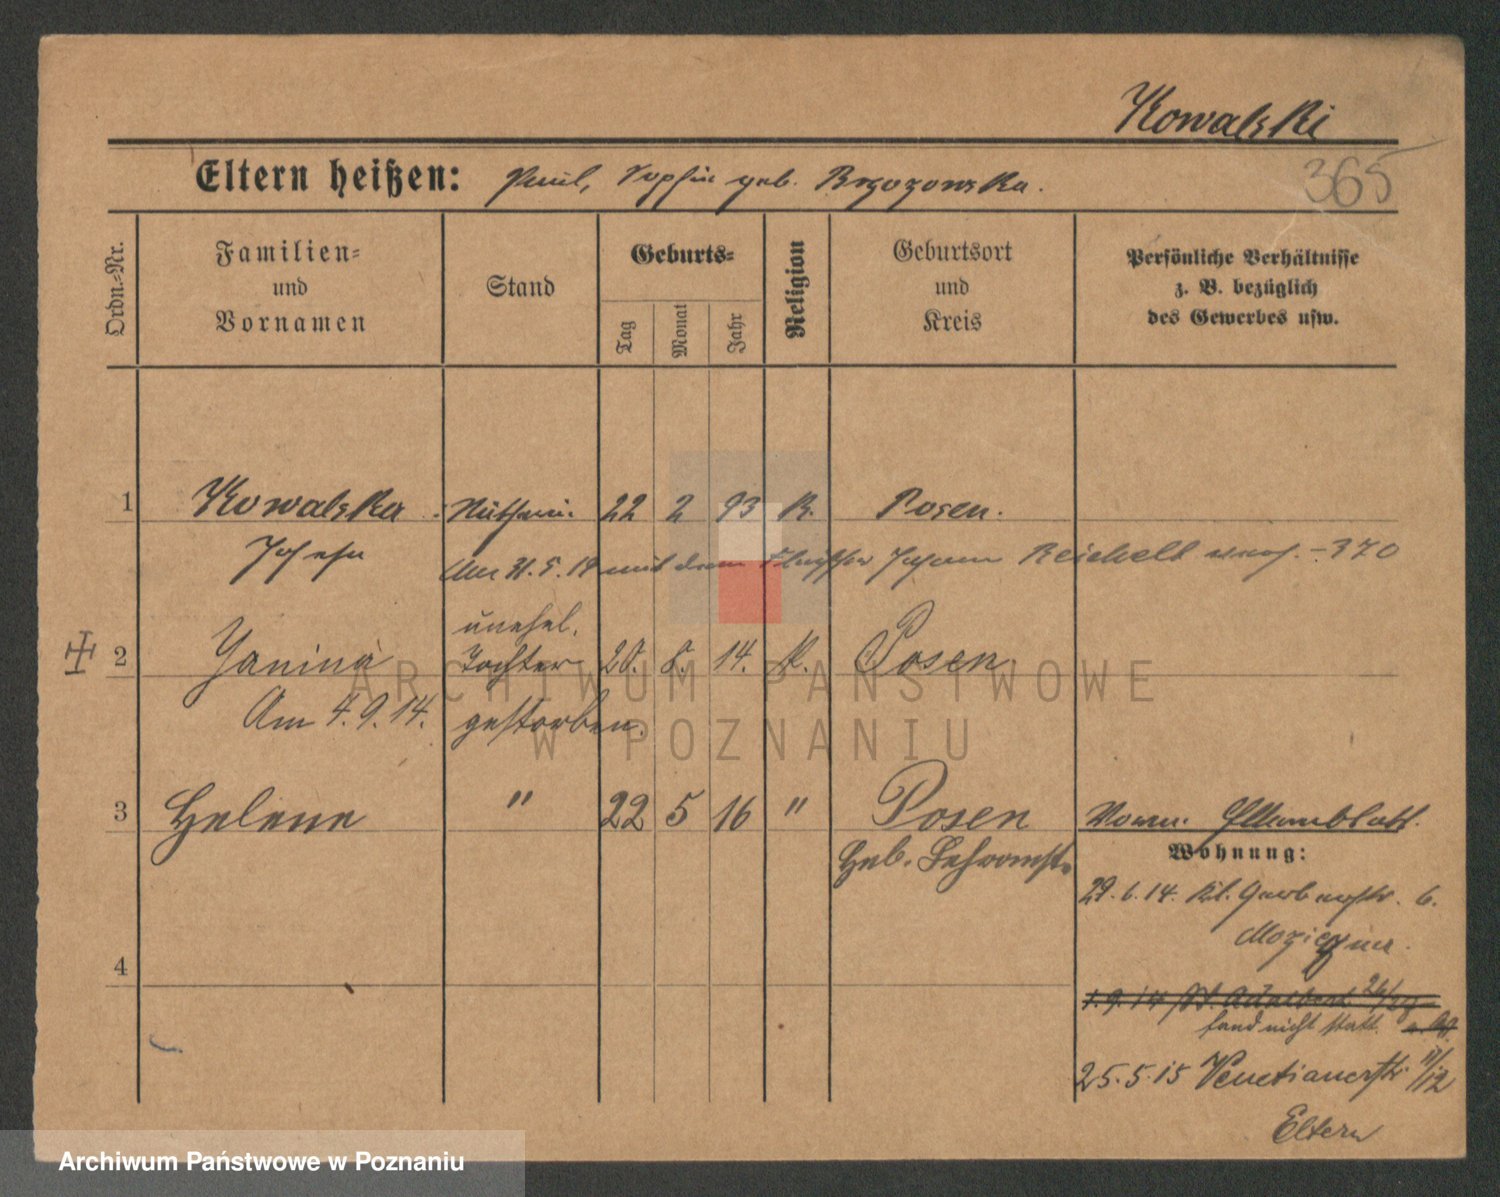 Kowalski
365
Eltern heißen: Paul, Sophie geb. Brzozowska.
Ordn.-Nr.
Familien-
und
Vornamen
Stand
Geburts-
Tag
Monat
Jahr
Religion
Geburtsort
und
Kreis
Persönliche Verhältnisse
z. B. bezüglich
des Gewerbes usw.
1 Kowalska Näherin. 22 2 93 K. Posen.
Josefa
Am 31.5.19 mit dem Fleischer Johann Reichelt -370
unehel.
2 Yanina Tochter 20. 8. 14. K. Posen
Am 4.9.14. gestorben.
3 Helene " 22 5 16 " Posen
Elternblatt.
Geb.
Wohnung:
29.6.14. Kl. Gerberstr. 6.
4
1.9.14 St. Adalbert 26/27
fand nicht statt.
25.5.15 Venetianerstr. 11/12
Eltern
ARCHIWUM PAŃSTWOWE
W POZNANIU
Archiwum Państwowe w Poznaniu